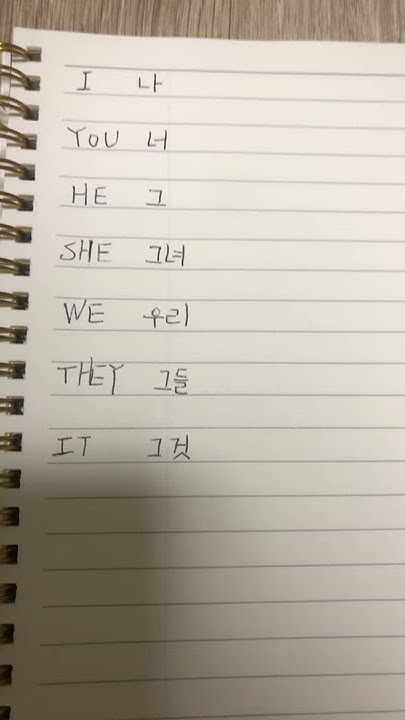 I 나
YOU 너
HE 그
SHE 그녀
WE 우리
THEY 그들
IT 그것